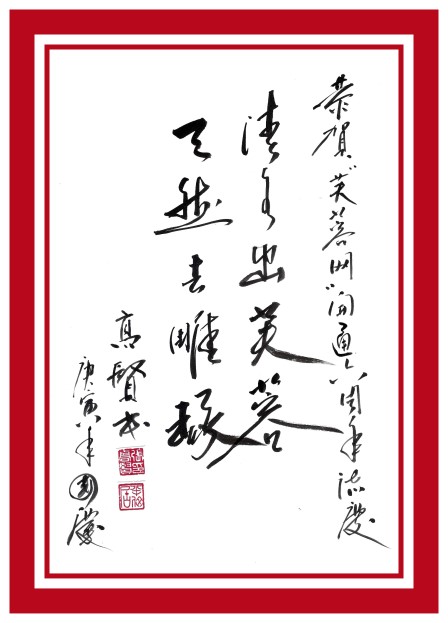 恭賀“芙蓉网”開通六周年誌慶
清水出芙蓉
天然去雕
高賢书
庚寅年國慶